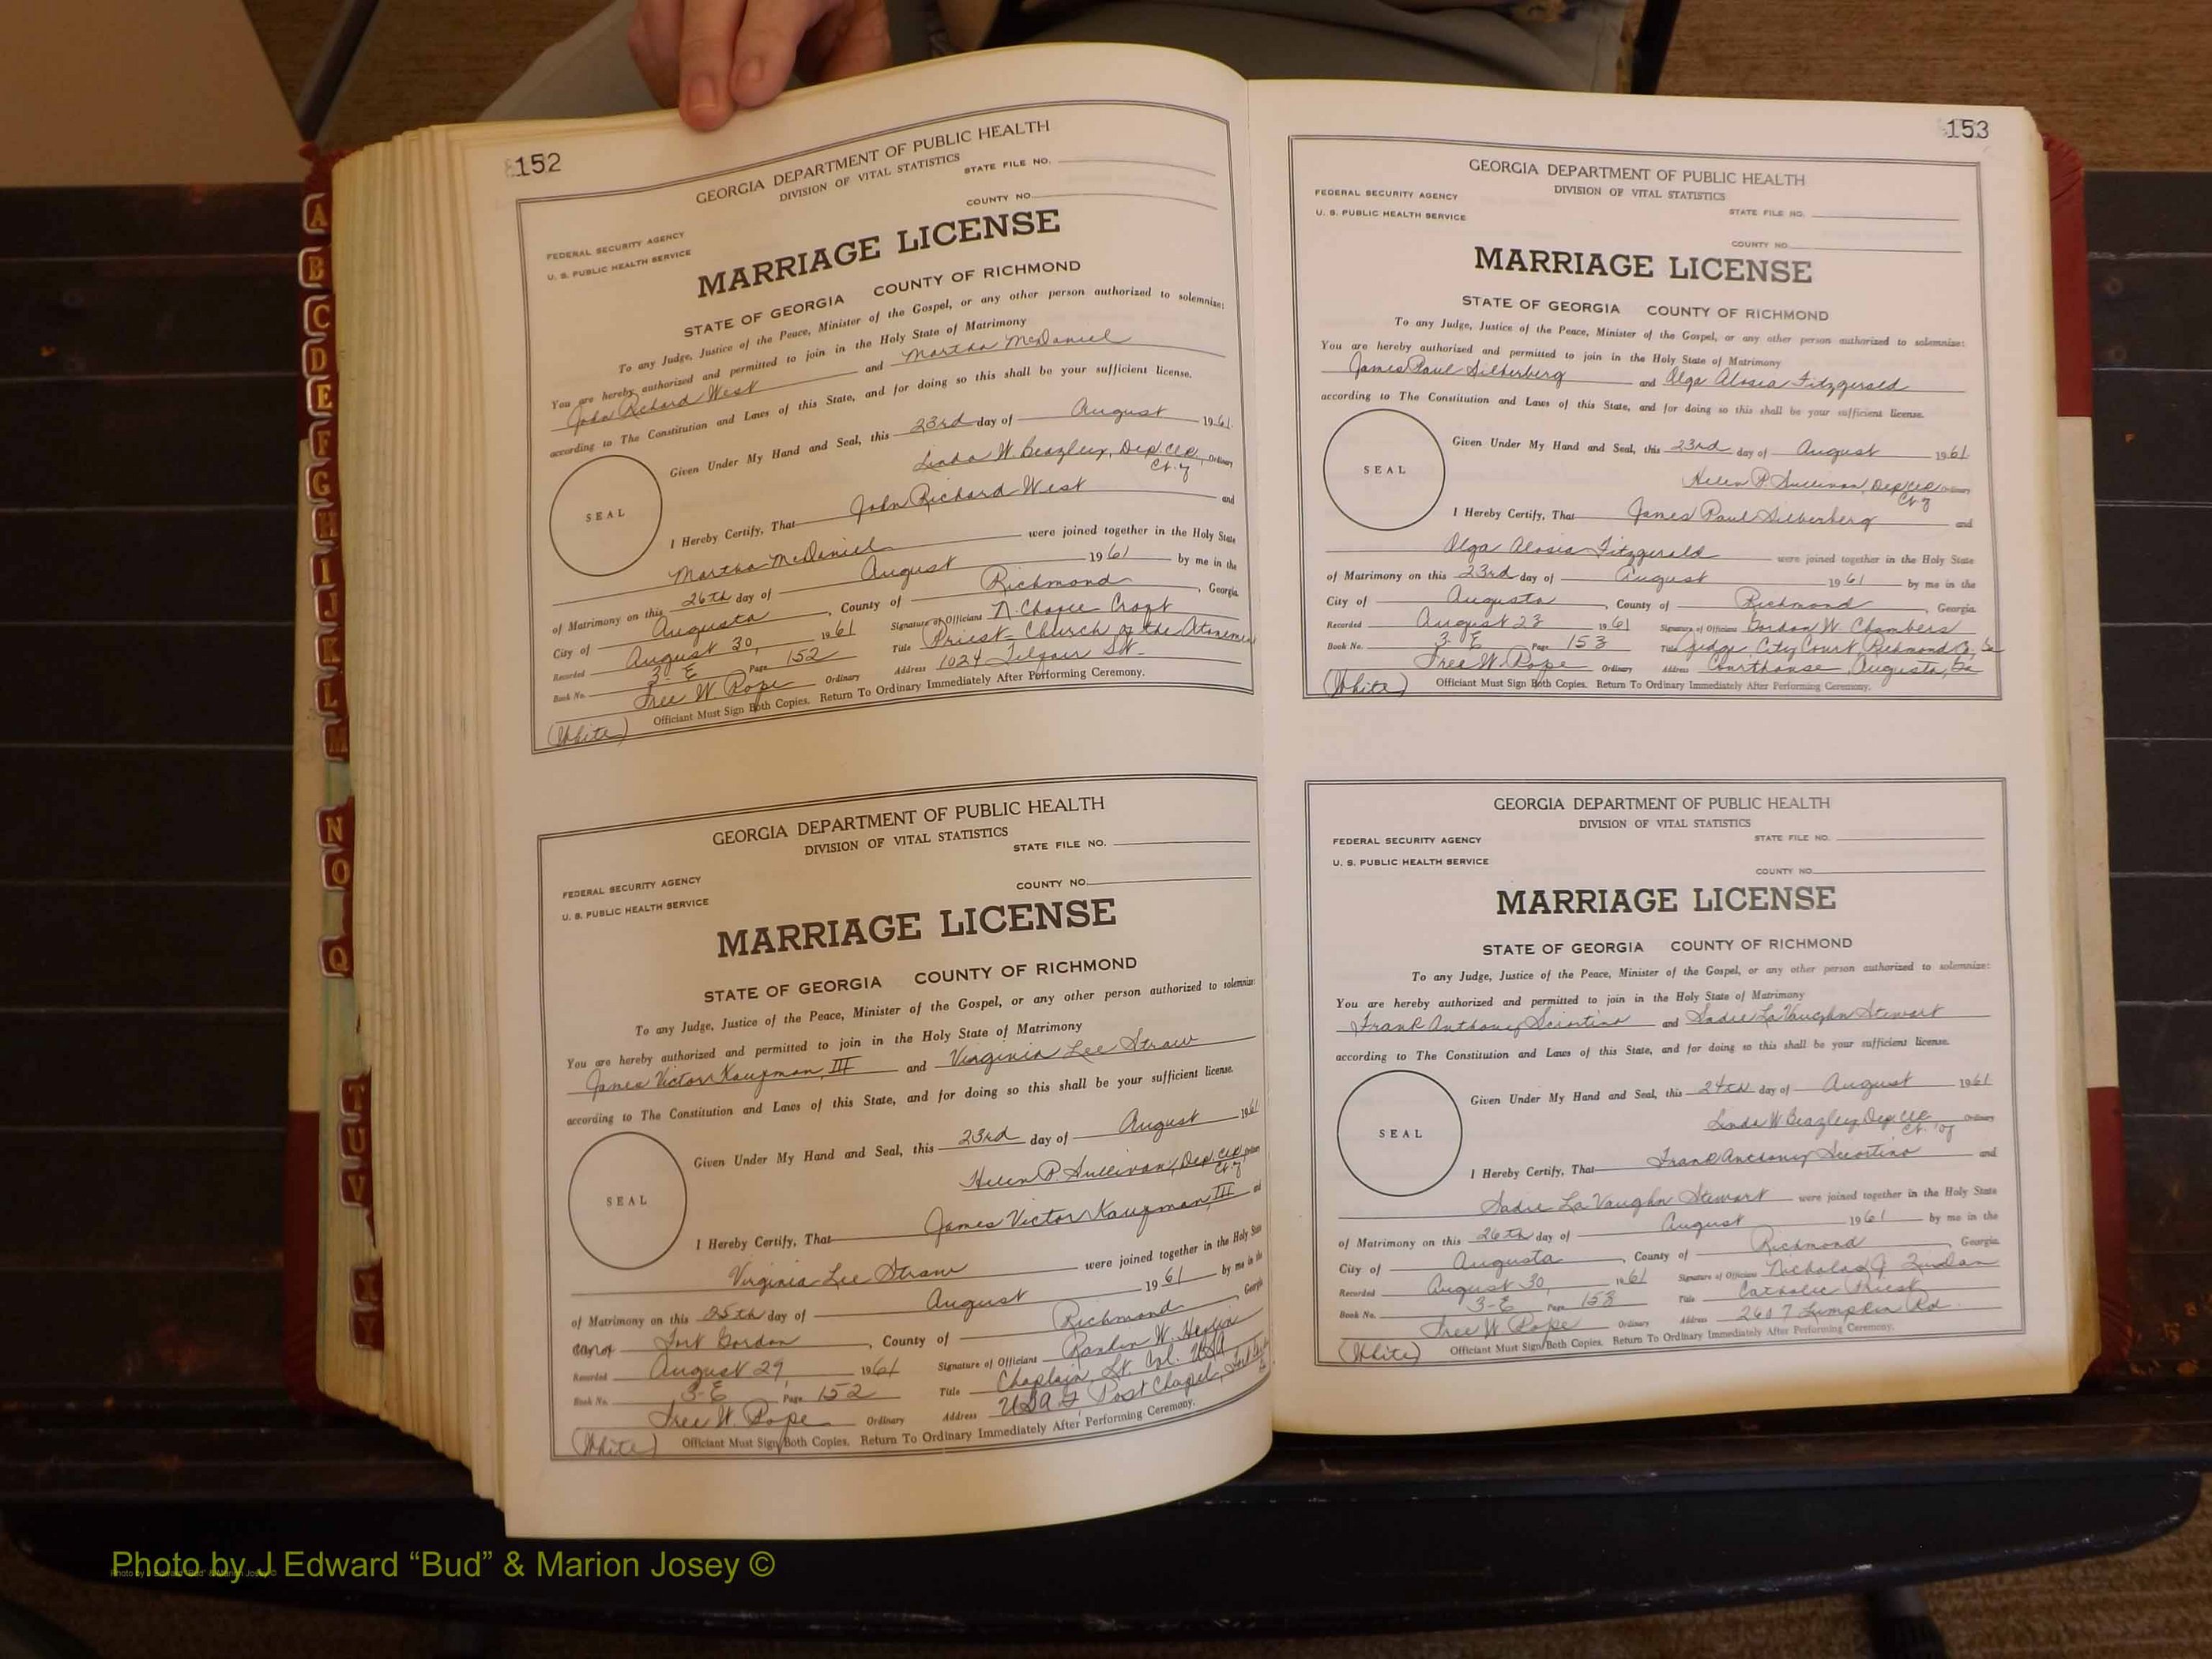 A
B
C
D
E
F
G
H
I
J
K
L
M
N
O
Q
T
U
V
X
Y
152
GEORGIA DEPARTMENT OF PUBLIC HEALTH
DIVISION OF VITAL STATISTICS
STATE FILE NO.
COUNTY NO.
FEDERAL SECURITY AGENCY
U. S. PUBLIC HEALTH SERVICE
MARRIAGE LICENSE
STATE OF GEORGIA COUNTY OF RICHMOND
To any Judge, Justice of the Peace, Minister of the Gospel, or any other person authorized to solemnize:
You are hereby authorized and permitted to join in the Holy State of Matrimony
John Richard West and Martha McDaniel
according to The Constitution and Laws of this State, and for doing so this shall be your sufficient license.
Given Under My Hand and Seal, this 23rd day of August 1961
Linda W. Beazley, Dep. Clk. Ordinary
Ct. of
SEAL
I Hereby Certify, That John Richard West and
Martha McDaniel were joined together in the Holy State
of Matrimony on this 26th day of August 1961 by me in the
City of Augusta, County of Richmond, Georgia
Recorded August 30, 1961 Signature of Officiant N. Chafee Croft
Book No. 3-E Page 152 Title Priest - Church of the Atonement
Free W. Pope Ordinary Address 1024 Telfair St.
(White) Officiant Must Sign Both Copies. Return To Ordinary Immediately After Performing Ceremony.
GEORGIA DEPARTMENT OF PUBLIC HEALTH
DIVISION OF VITAL STATISTICS
STATE FILE NO.
COUNTY NO.
FEDERAL SECURITY AGENCY
U. S. PUBLIC HEALTH SERVICE
MARRIAGE LICENSE
STATE OF GEORGIA COUNTY OF RICHMOND
To any Judge, Justice of the Peace, Minister of the Gospel, or any other person authorized to solemnize:
You are hereby authorized and permitted to join in the Holy State of Matrimony
James Victor Kaufman, III and Virginia Lee Straw
according to The Constitution and Laws of this State, and for doing so this shall be your sufficient license.
Given Under My Hand and Seal, this 23rd day of August 1961
Helen P. Sullivan, Dep. Clk. Ordinary
Ct. of
SEAL
I Hereby Certify, That James Victor Kaufman, III and
Virginia Lee Straw were joined together in the Holy State
of Matrimony on this 25th day of August 1961 by me in the
City of Fort Gordon, County of Richmond, Georgia
Recorded August 29, 1961 Signature of Officiant Rankin W.
Book No. 3-E Page 152 Title Chaplain, Lt. Col. USA
Free W. Pope Ordinary Address Post Chapel,
(White) Officiant Must Sign Both Copies. Return To Ordinary Immediately After Performing Ceremony.
153
GEORGIA DEPARTMENT OF PUBLIC HEALTH
DIVISION OF VITAL STATISTICS
FEDERAL SECURITY AGENCY
U. S. PUBLIC HEALTH SERVICE
STATE FILE NO.
COUNTY NO.
MARRIAGE LICENSE
STATE OF GEORGIA COUNTY OF RICHMOND
To any Judge, Justice of the Peace, Minister of the Gospel, or any other person authorized to solemnize:
You are hereby authorized and permitted to join in the Holy State of Matrimony
James Paul Silberberg and Olga Alosia Fitzgerald
according to The Constitution and Laws of this State, and for doing so this shall be your sufficient license.
Given Under My Hand and Seal, this 23rd day of August 1961
Helen P. Sullivan, Dep. Clk. Ordinary
Ct. of
SEAL
I Hereby Certify, That James Paul Silberberg and
Olga Alosia Fitzgerald were joined together in the Holy State
of Matrimony on this 23rd day of August 1961 by me in the
City of Augusta, County of Richmond, Georgia
Recorded August 23 1961 Signature of Officiant Gordon W. Chambers
Book No. 3-E Page 153 Title Judge City Court, Richmond Co., Ga
Free W. Pope Ordinary Address Courthouse, Augusta, Ga
(White) Officiant Must Sign Both Copies. Return To Ordinary Immediately After Performing Ceremony.
GEORGIA DEPARTMENT OF PUBLIC HEALTH
DIVISION OF VITAL STATISTICS
FEDERAL SECURITY AGENCY
U. S. PUBLIC HEALTH SERVICE
STATE FILE NO.
COUNTY NO.
MARRIAGE LICENSE
STATE OF GEORGIA COUNTY OF RICHMOND
To any Judge, Justice of the Peace, Minister of the Gospel, or any other person authorized to solemnize:
You are hereby authorized and permitted to join in the Holy State of Matrimony
Frank Anthony Sciortino and Sadie La Vaughn Stewart
according to The Constitution and Laws of this State, and for doing so this shall be your sufficient license.
Given Under My Hand and Seal, this 24th day of August 1961
Linda W. Beazley Dep. Clk. Ordinary
Ct. of
SEAL
I Hereby Certify, That Frank Anthony Sciortino and
Sadie La Vaughn Stewart were joined together in the Holy State
of Matrimony on this 26th day of August 1961 by me in the
City of Augusta, County of Richmond, Georgia
Recorded August 30, 1961 Signature of Officiant Nicholas J. Quinlan
Book No. 3-E Page 153 Title Catholic Priest
Free W Pope Ordinary Address 2607 Lumpkin Rd.
(White) Officiant Must Sign Both Copies. Return To Ordinary Immediately After Performing Ceremony.
Photo by J Edward “Bud” & Marion Josey ©
Photo by J Edward “Bud” & Marion Josey ©